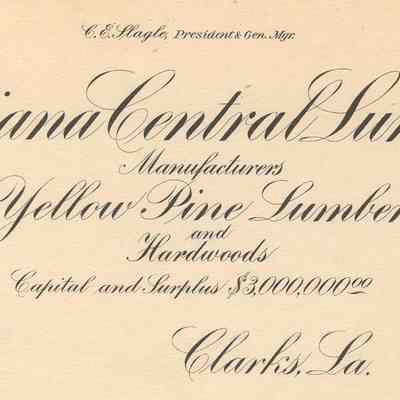 C. E. Slagle, President & Gen. Mgr.
iana Central Lum
Manufacturers
Yellow Pine Lumber
and
Hardwoods
Capital and Surplus $3,000,000.00
Clarks, La.